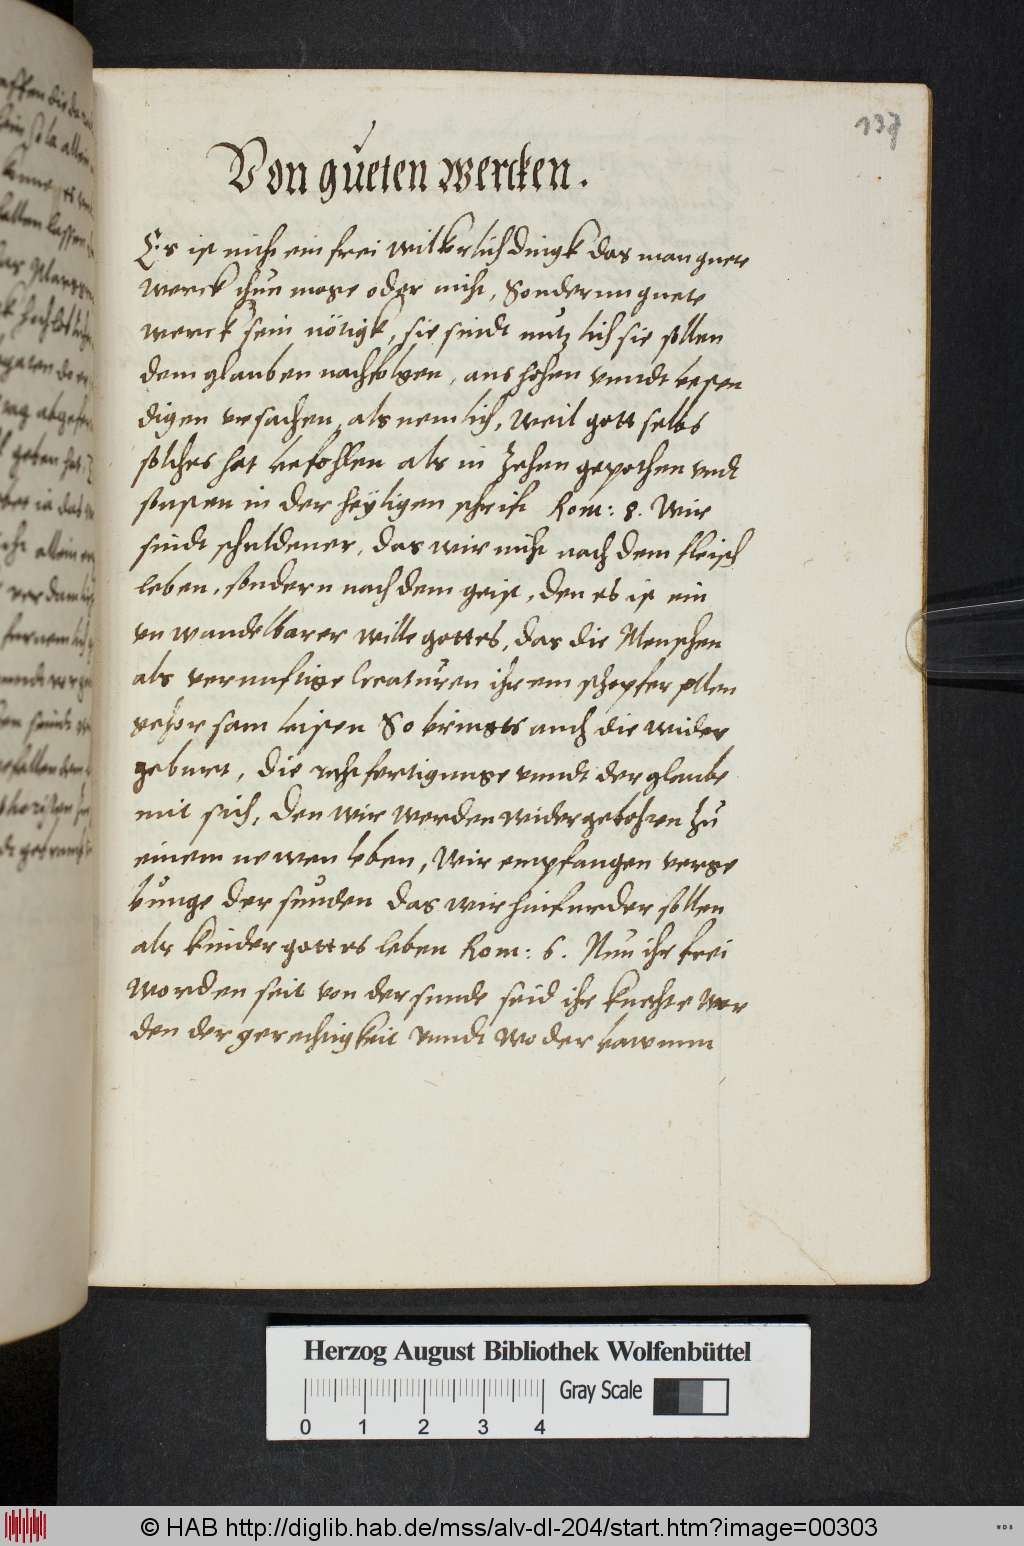 137
Von gueten wercken.
Es ist nicht ein frei wilkorlich dingk das man guete
werck thun moge oder nicht, Sondernn guete
werck sein nötigk, sie sindt nutzlich sie sollen
dem glauben nachfolgen, aus hohen unndt besten
digen ursachen, als nemlich, weil gott selbs
solches hat befohlen als in zehen gepothen undt
sonsten in der heyligen schrift Rom: 8. Wir
sindt schuldener, das wir nicht nach dem fleisch
leben, sondern nach dem geist, den es ist ein
unwandelbarer wille gottes, das die Menschen
als vernuftige Creaturen ihrem schepfer sollen
gehorsam leisten So bringts auch die wider
geburt, die rechtfertigunge unndt der glaube
mit sich, den wir werden widergebohren zu
einem newen leben, Wir empfangen verge
bunge der sunden das wir hinfurder sollen
als kinder gottes leben Rom: 6. Nun ihr frei
worden seit von der sunde seid ihr knechte wor
den der gerechtigkeit unndt wo der bawmm
Herzog August Bibliothek Wolfenbüttel
Gray Scale
0 1 2 3 4
© HAB http://diglib.hab.de/mss/alv-dl-204/start.htm?image=00303